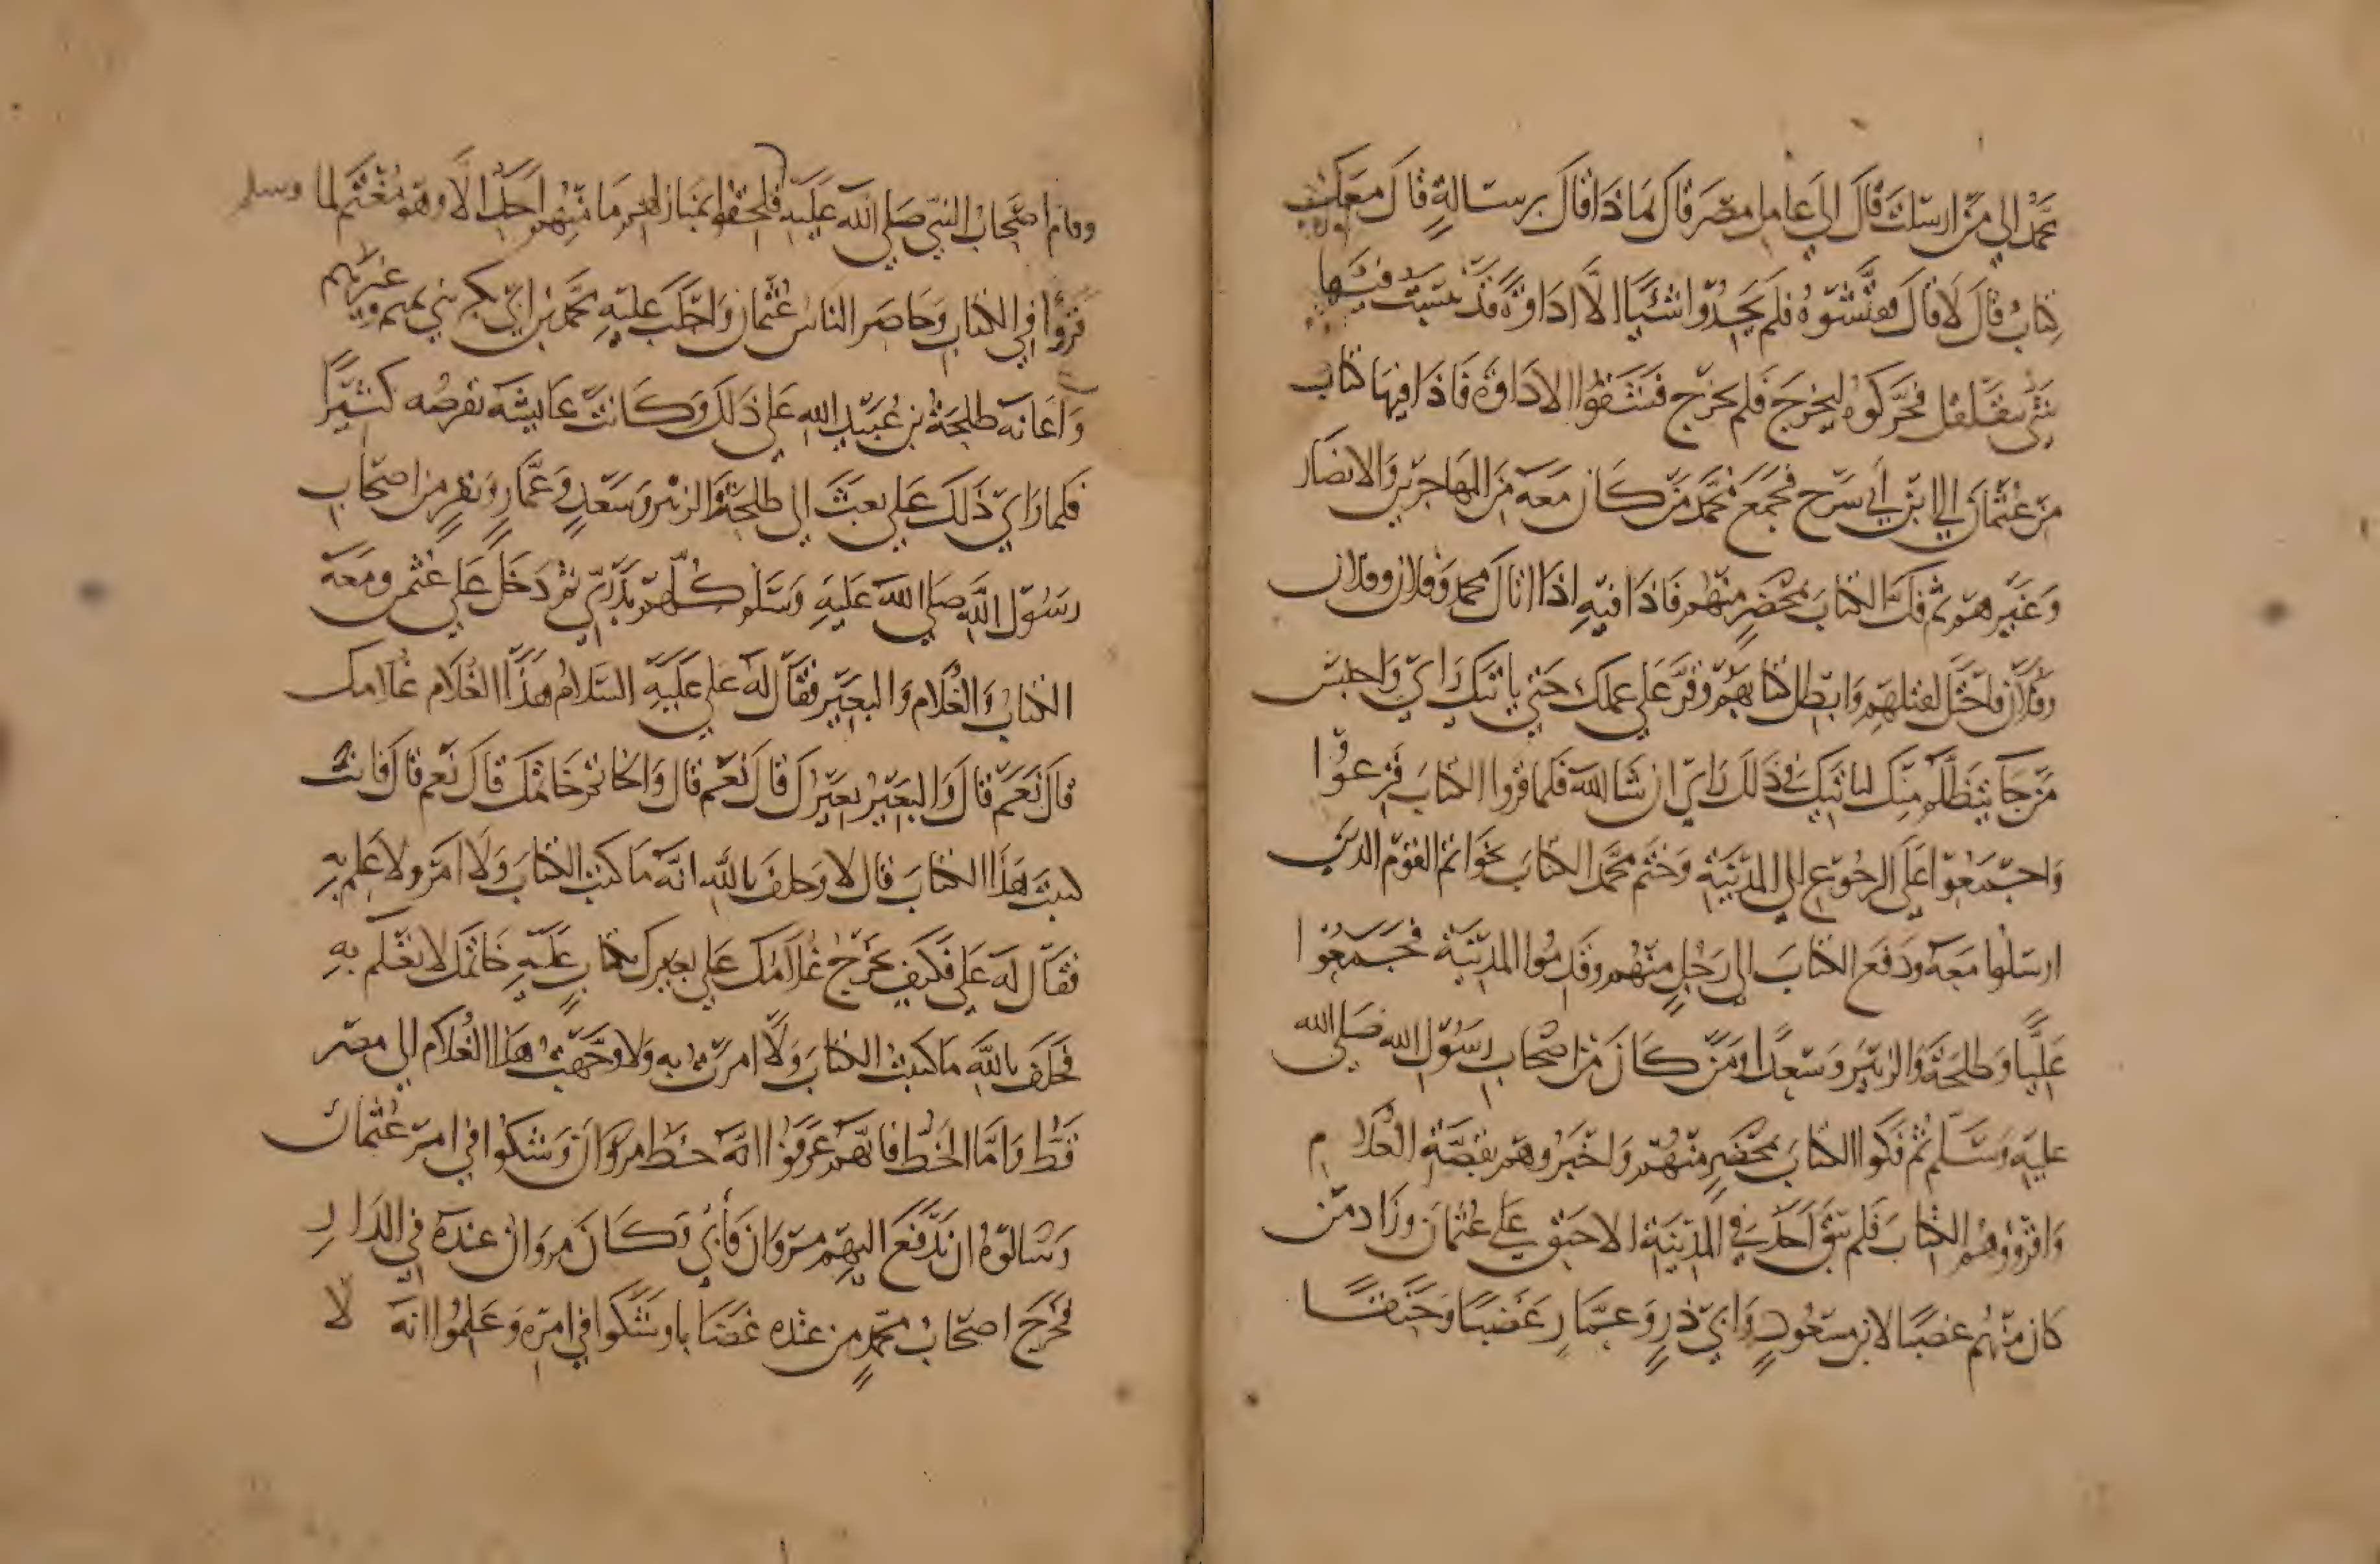 محمد الى من ارسلت قال الي عامل مصر قال بماذا قال برسالة قال معك
كتاب قال لا قال ففتشوه فلم يجدوا شيا الا اداوة قد يبست فيها
شي يتقلقل فحركوه ليخرج فلم يخرج فشقوا الاداوة فاذا فيها كتاب
من عثمان الي ابن ابي سرح فجمع محمد من كان معه من المهاجرين والانصار
وغيرهم ثم فك الكتاب بمحضر منهم فاذا فيه اذا اتاك محمد وفلان وفلان
وفلان فاحتل لقتلهم وابطل كتابهم وقر علي عملك حتي ياتيك رايي واحبس
من جا يتظلم منك لياتيك في ذلك رايي ان شا الله فلما قروا الكتاب فزعوا
واجمعوا علي الرجوع الي المدينة وختم محمد الكتاب بخواتم القوم الدين
ارسلوا معه ودفع الكتاب الي رجل منهم وقدموا المدينة فجمعوا
عليا وطلحة والزبير وسعدا ومن كان من اصحاب رسول الله صلي الله
عليه وسلم ثم فكوا الكتاب بمحضر منهم واخبروهم بقصة الغلام
واقروهم الكتاب فلم يبق احد في المدينة الا حنق علي عثمان وزاد من
كان منهم غضبا لابن مسعود وابي ذر وعمار غضبا وحنقا
وقام اصحاب النبي صلي الله عليه فلحقوا بمنازلهم ما منهم احد الا وهو مغتم لما وسلم
قروا في الكتاب وحاصر الناس عثمان واجلب عليه محمد بن ابي بكر بني تميم وغيرهم
واعانه طلحة بن عبيد الله علي ذلك وكانت عايشة تقرصه كثيرا
فلما راي ذلك علي بعث الي طلحة والزبير وسعد وعمار ونفر من اصحاب
رسول الله صلي الله عليه وسلم كلهم بدري ثم دخل علي عثمن ومعه
الكتاب والغلام والبعير فقال له علي عليه السلام هذا الغلام غلامك
قال نعم قال والبعير بعيرك قال نعم قال والخاتم خاتمك قال نعم قال فانت
كتبت هذا الكتاب قال لا وحلف بالله انه ما كتب الكتاب ولا امر ولا علم به
فقال له علي فكيف يخرج غلامك علي بعيرك بكتاب عليه خاتمك لا تعلم به
فحلف بالله ما كتبت الكتاب ولا امرت به ولا وجهت هذا الغلام الي مصر
قط واما الخط فانهم عرفوا انه خط مروان وشكوا في امر عثمان
وسالوه ان يدفع اليهم مروان فأبي وكان مروان عنده في الدار
فخرج اصحاب محمد من عنده غضابا وشكوا في امره وعلموا انه لا